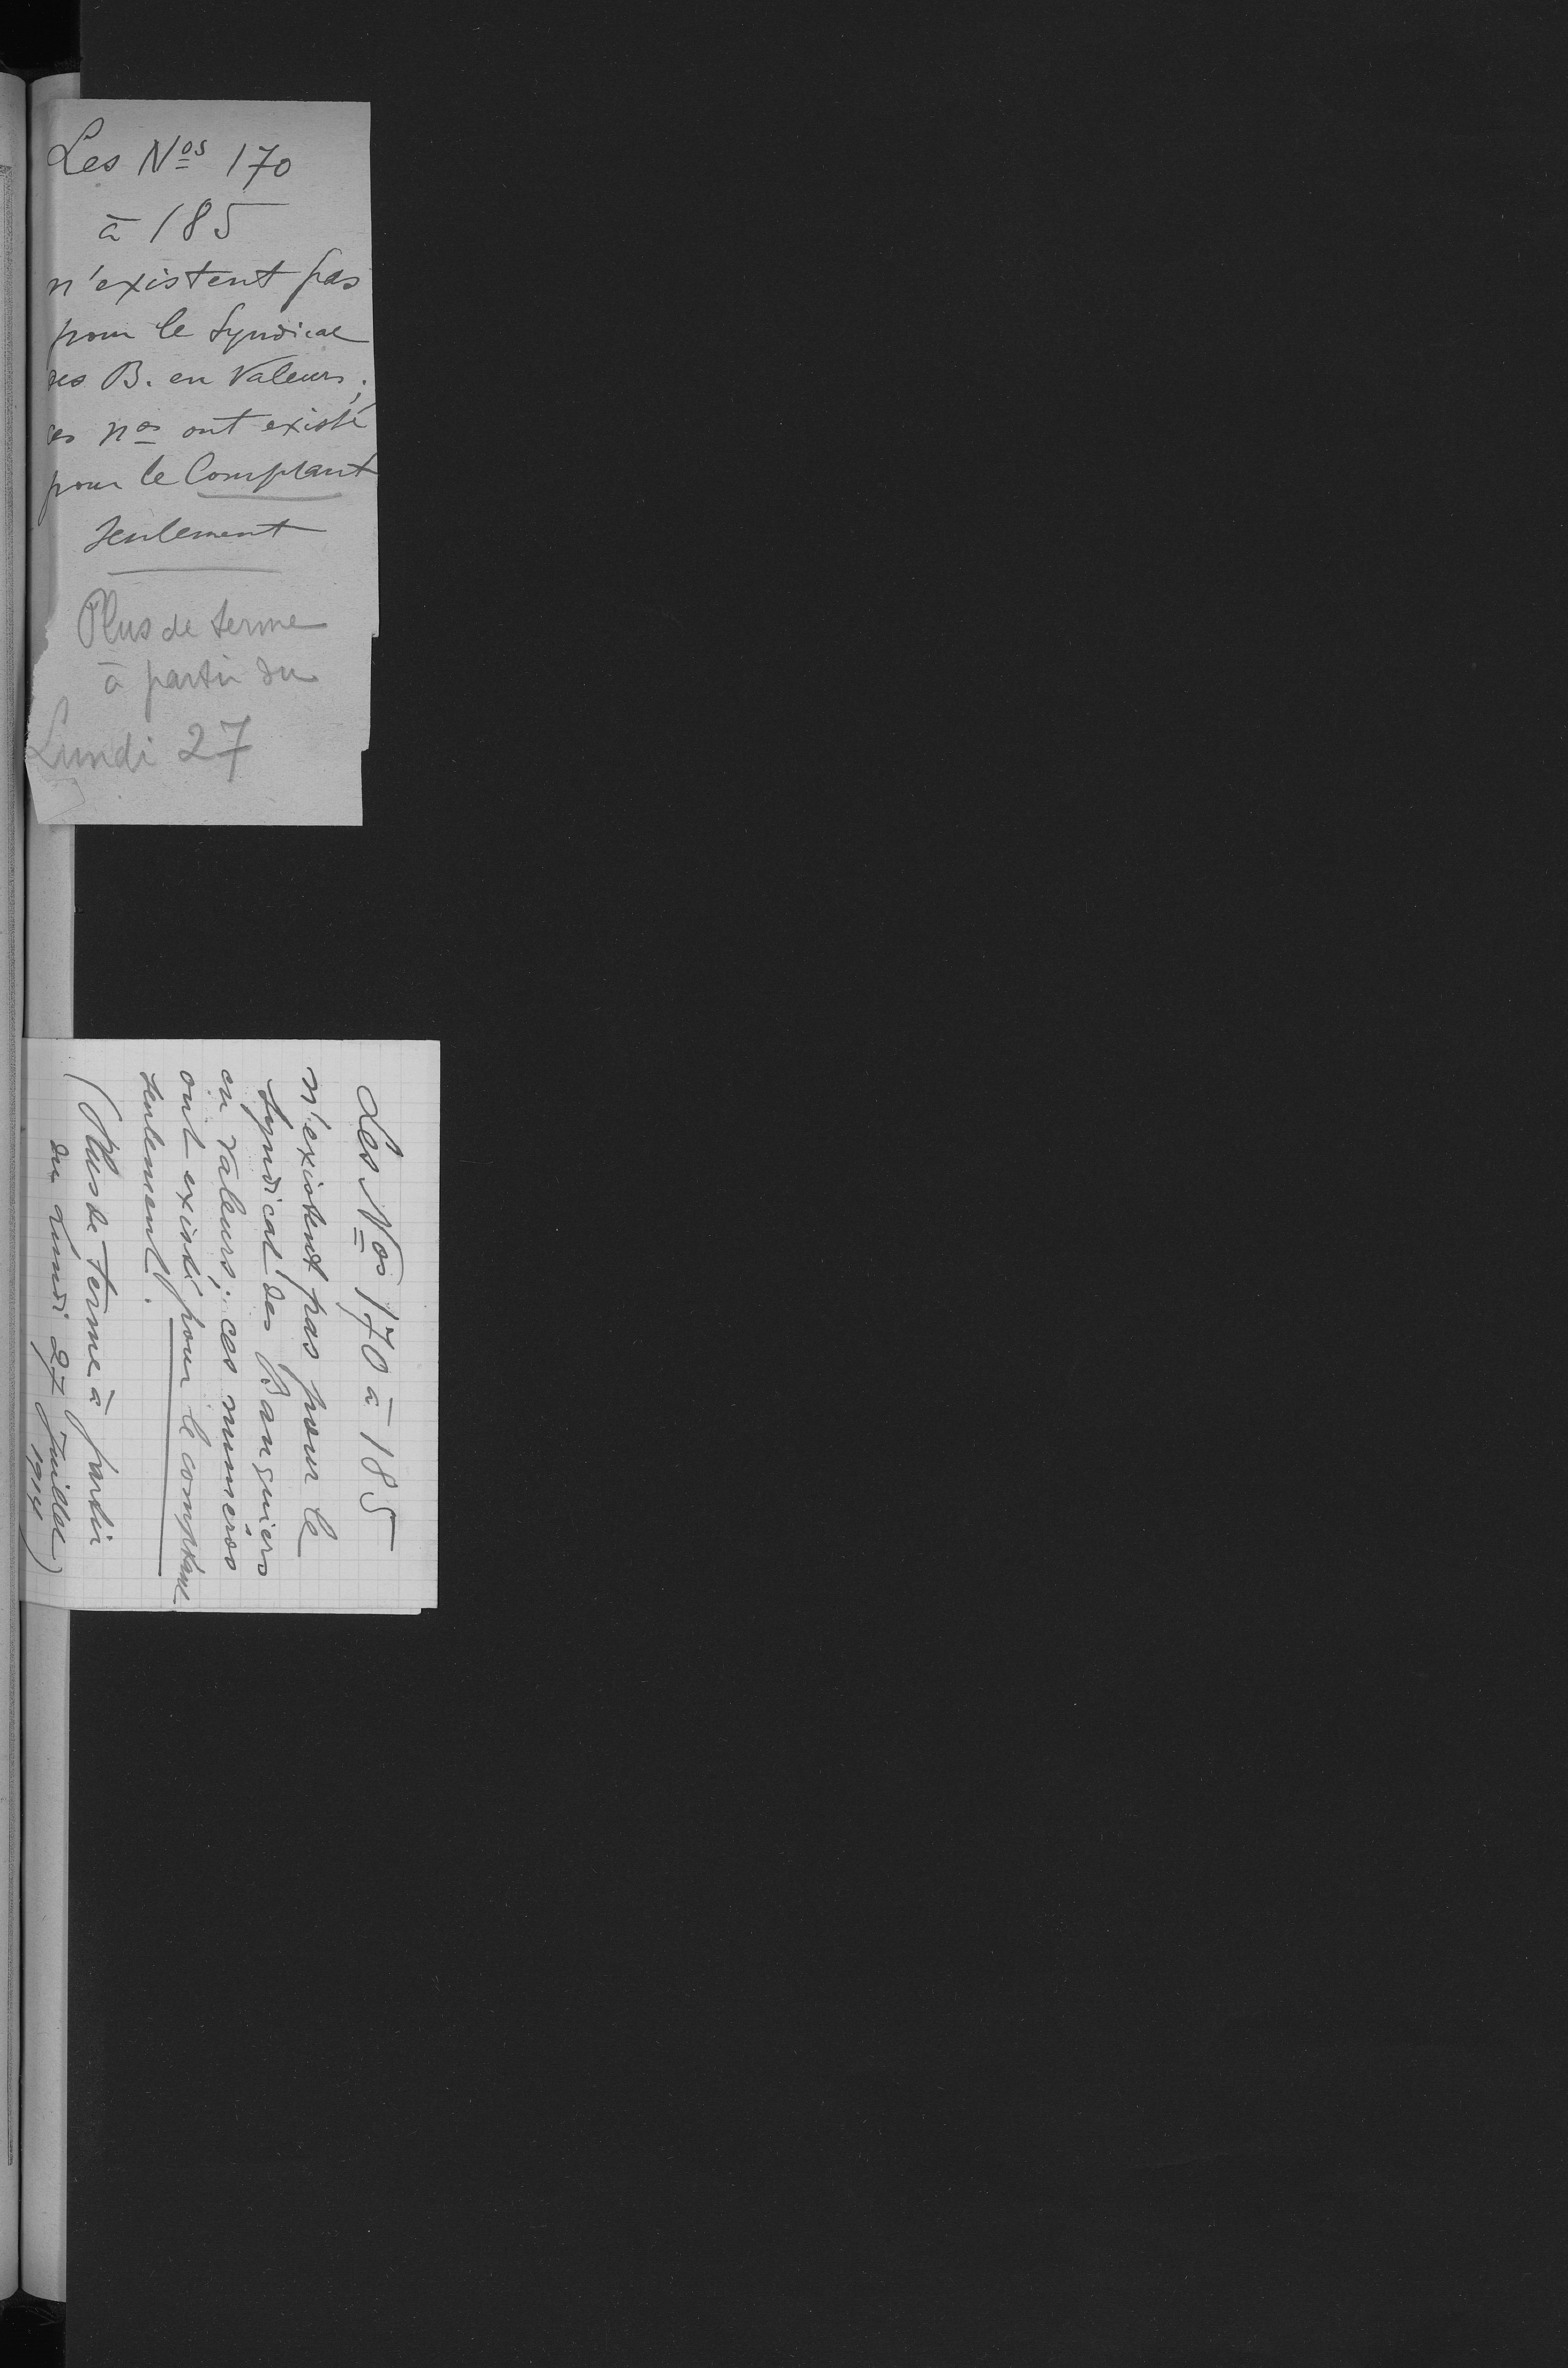 Les Nos 170
à 185
n'existent pas
pour le Syndicat
des B. en Valeurs;
ces nos ont existé
pour le Comptant
seulement
Plus de terme
à partir du
Lundi 27
Les Nos 170 à 185
n'existent pas pour le
Syndicat des Banquiers
en valeurs; ces numéros
ont existé pour le comptant
seulement.
(Plus de terme à partir
du Lundi 27 Juillet
1914)